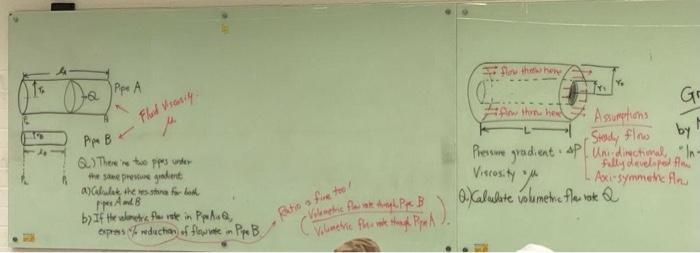 Pipe A
Q
Fluid Viscosity
μ
Pipe B
Q.) There're two pipes under
the same pressure gradient
a) Calculate the resistance for both
pipes A and B
b) If the volumetric flow rate in Pipe A is Q,
express % reduction of flowrate in Pipe B
Ratio is fine too!
(Volumetric flow rate through Pipe B
Volumetric flow rate through Pipe A)
flow thru here
flow thru here
L
Pressure gradient = ΔP
Viscosity = μ
Q.) Calculate volumetric flow rate Q
Assumptions
Steady flow
Uni-directional,
fully developed flow
Axi-symmetric flow
by
"In-